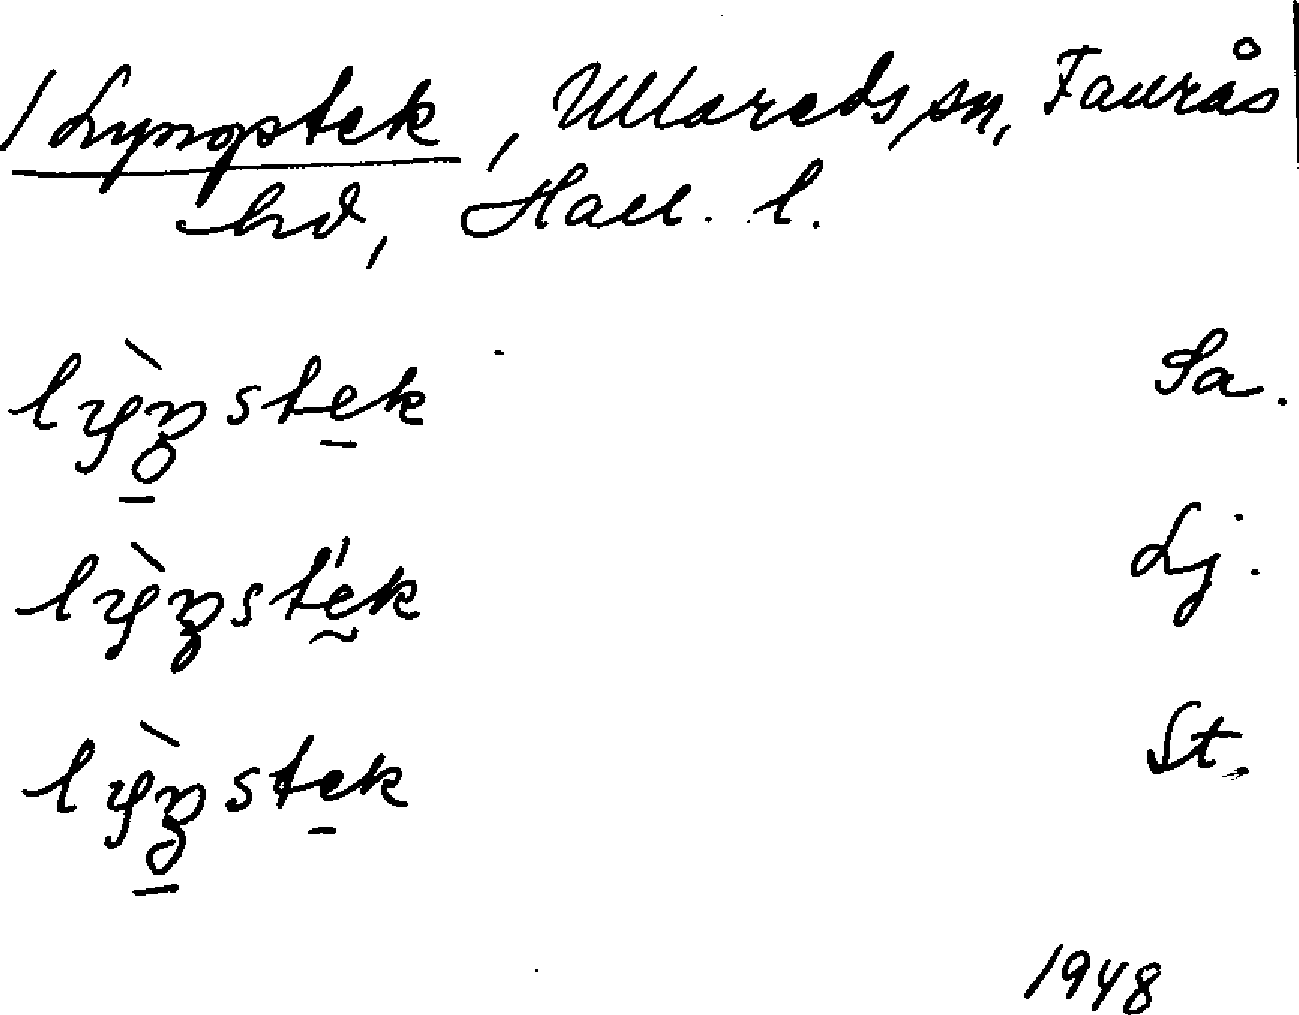 Lyngstek, Ullareds sn, Faurås
hd, Hall. l.
lỳŋstek Sa.
lỳŋste̍k Lj.
lỳŋstek St.
1948